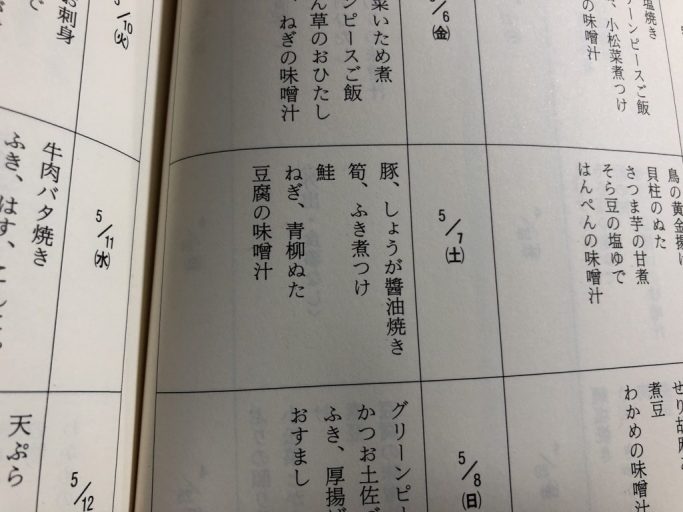 5/6(金)
菜いため煮
ーンピースご飯
ん草のおひたし
、ねぎの味噌汁
塩焼き
リーンピースご飯
、小松菜煮つけ
の味噌汁
5/7(土)
豚、しょうが醬油焼き
筍、ふき煮つけ
鮭
ねぎ、青柳ぬた
豆腐の味噌汁
鳥の黄金揚げ
貝柱のぬた
さつま芋の甘煮
そら豆の塩ゆで
はんぺんの味噌汁
5/8(日)
グリーンピー
かつお土佐
ふき、厚揚げ
おすまし
せり胡麻
煮豆
わかめの味噌汁
5/10(火)
お刺身
5/11(水)
牛肉バタ焼き
ふき、はす、こんにゃ
5/12
天ぷら